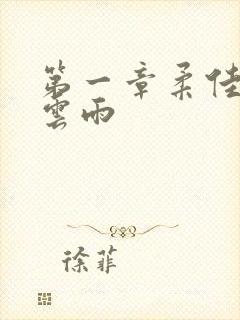 第一章柔佳
雲雨
徐菲